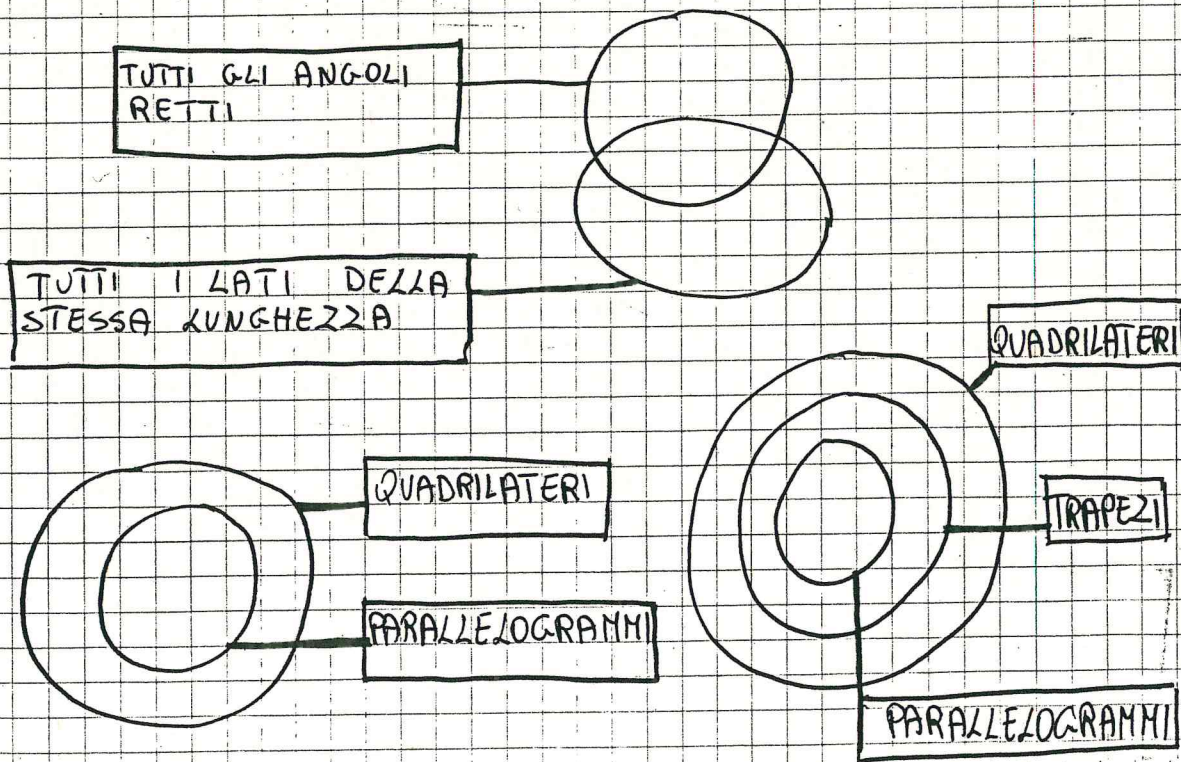 TUTTI GLI ANGOLI
RETTI
TUTTI I LATI DELLA
STESSA LUNGHEZZA
QUADRILATERI
TRAPEZI
PARALLELOGRAMMI
QUADRILATERI
PARALLELOGRAMMI